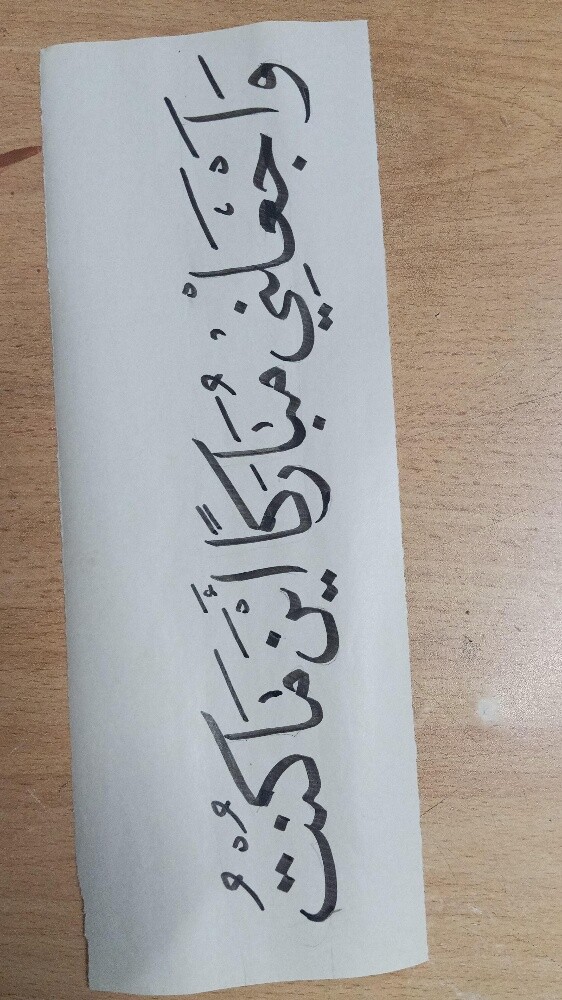 وَاَجْعَلْنِي مُبَارَكًا اَيْنَ مَا كُنْتُ